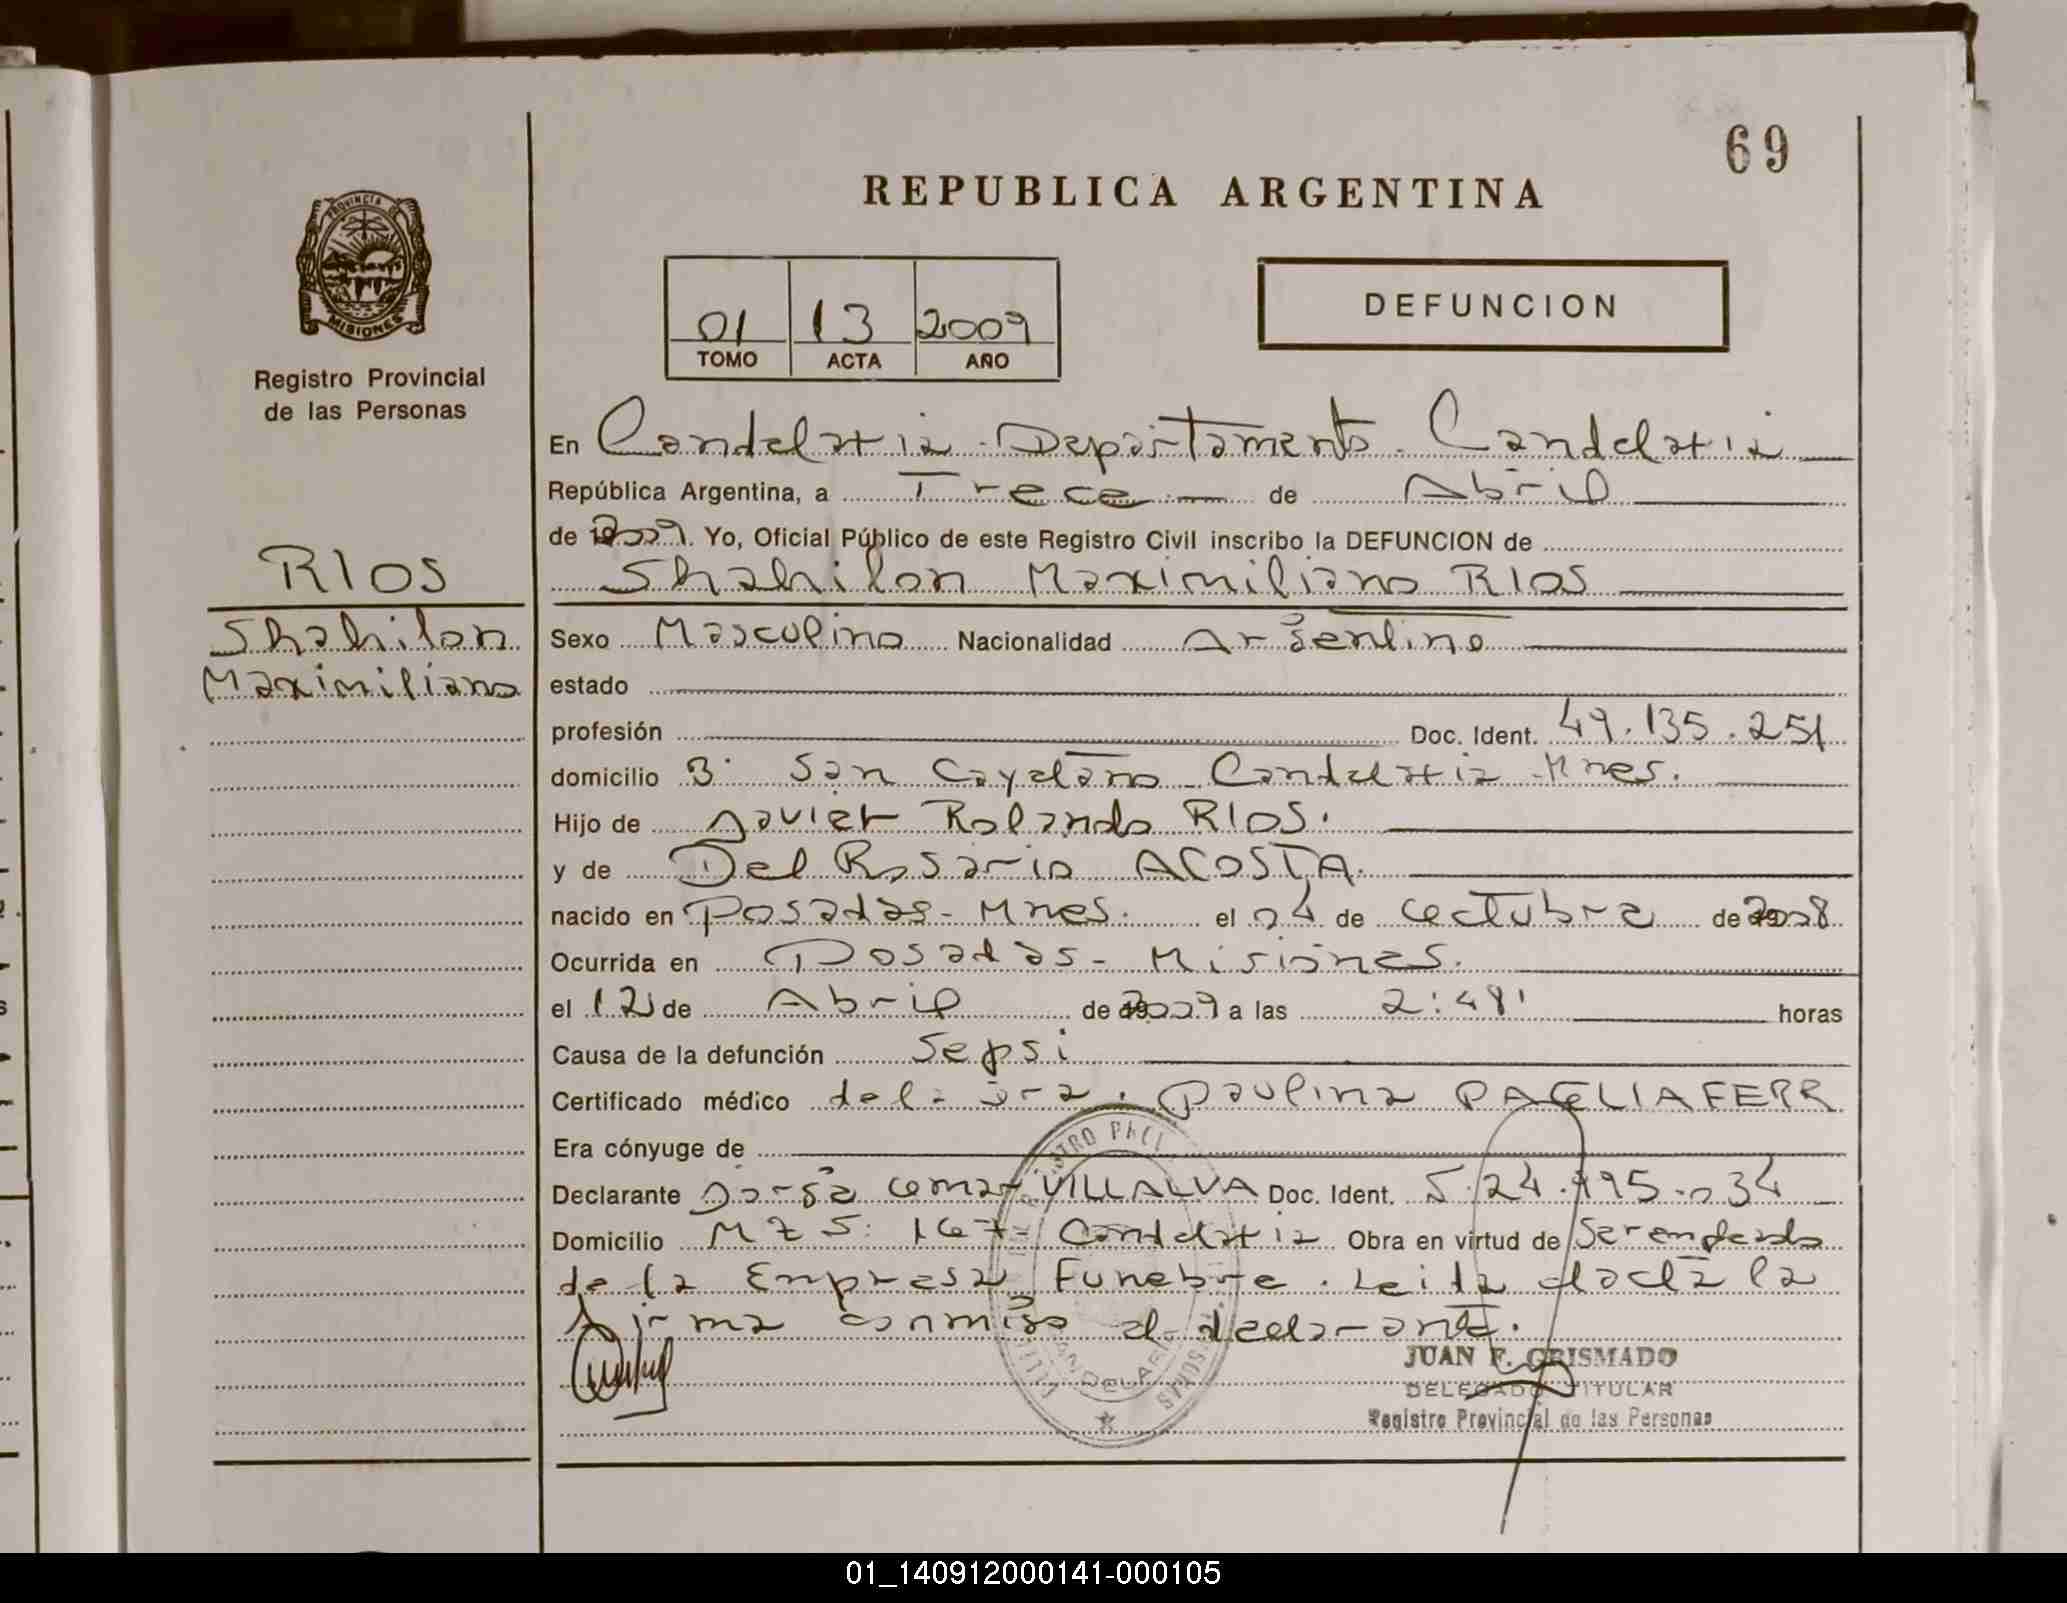 69
REPUBLICA ARGENTINA
PROVINCIA DE
MISIONES
Registro Provincial
de las Personas
01 13 2009
TOMO ACTA AÑO
DEFUNCION
RIOS
Shahilon
Maximiliano
En Candelaria - Departamento Candelaria
República Argentina, a Trece de Abril
de 2009. Yo, Oficial Público de este Registro Civil inscribo la DEFUNCION de
Shahilon Maximiliano RIOS
Sexo Masculino Nacionalidad Argentino
estado
profesión Doc. Ident. 49.135.251
domicilio B° San Cayetano - Candelaria - Mnes.
Hijo de Javier Rolando RIOS.
y de Del Rosario ACOSTA.
nacido en Posadas - Mnes. el 04 de Octubre de 2008
Ocurrida en Posadas - Misiones.
el 12 de Abril de 2009 a las 2:48' horas
Causa de la defunción Sepsi
Certificado médico de la Dra. Paulina PAGLIAFERR
Era cónyuge de
Declarante Jorge Omar VILLALVA Doc. Ident. 24.195.034
Domicilio MZ S: 167 - Candelaria Obra en virtud de Ser empleado
de la Empresa Funebre. Leida el acta la
firma conmigo el declarante.
CANDELARIA
JUAN F. GRISMADO
DELEGADO TITULAR
Registro Provincial de las Personas
01_140912000141-000105